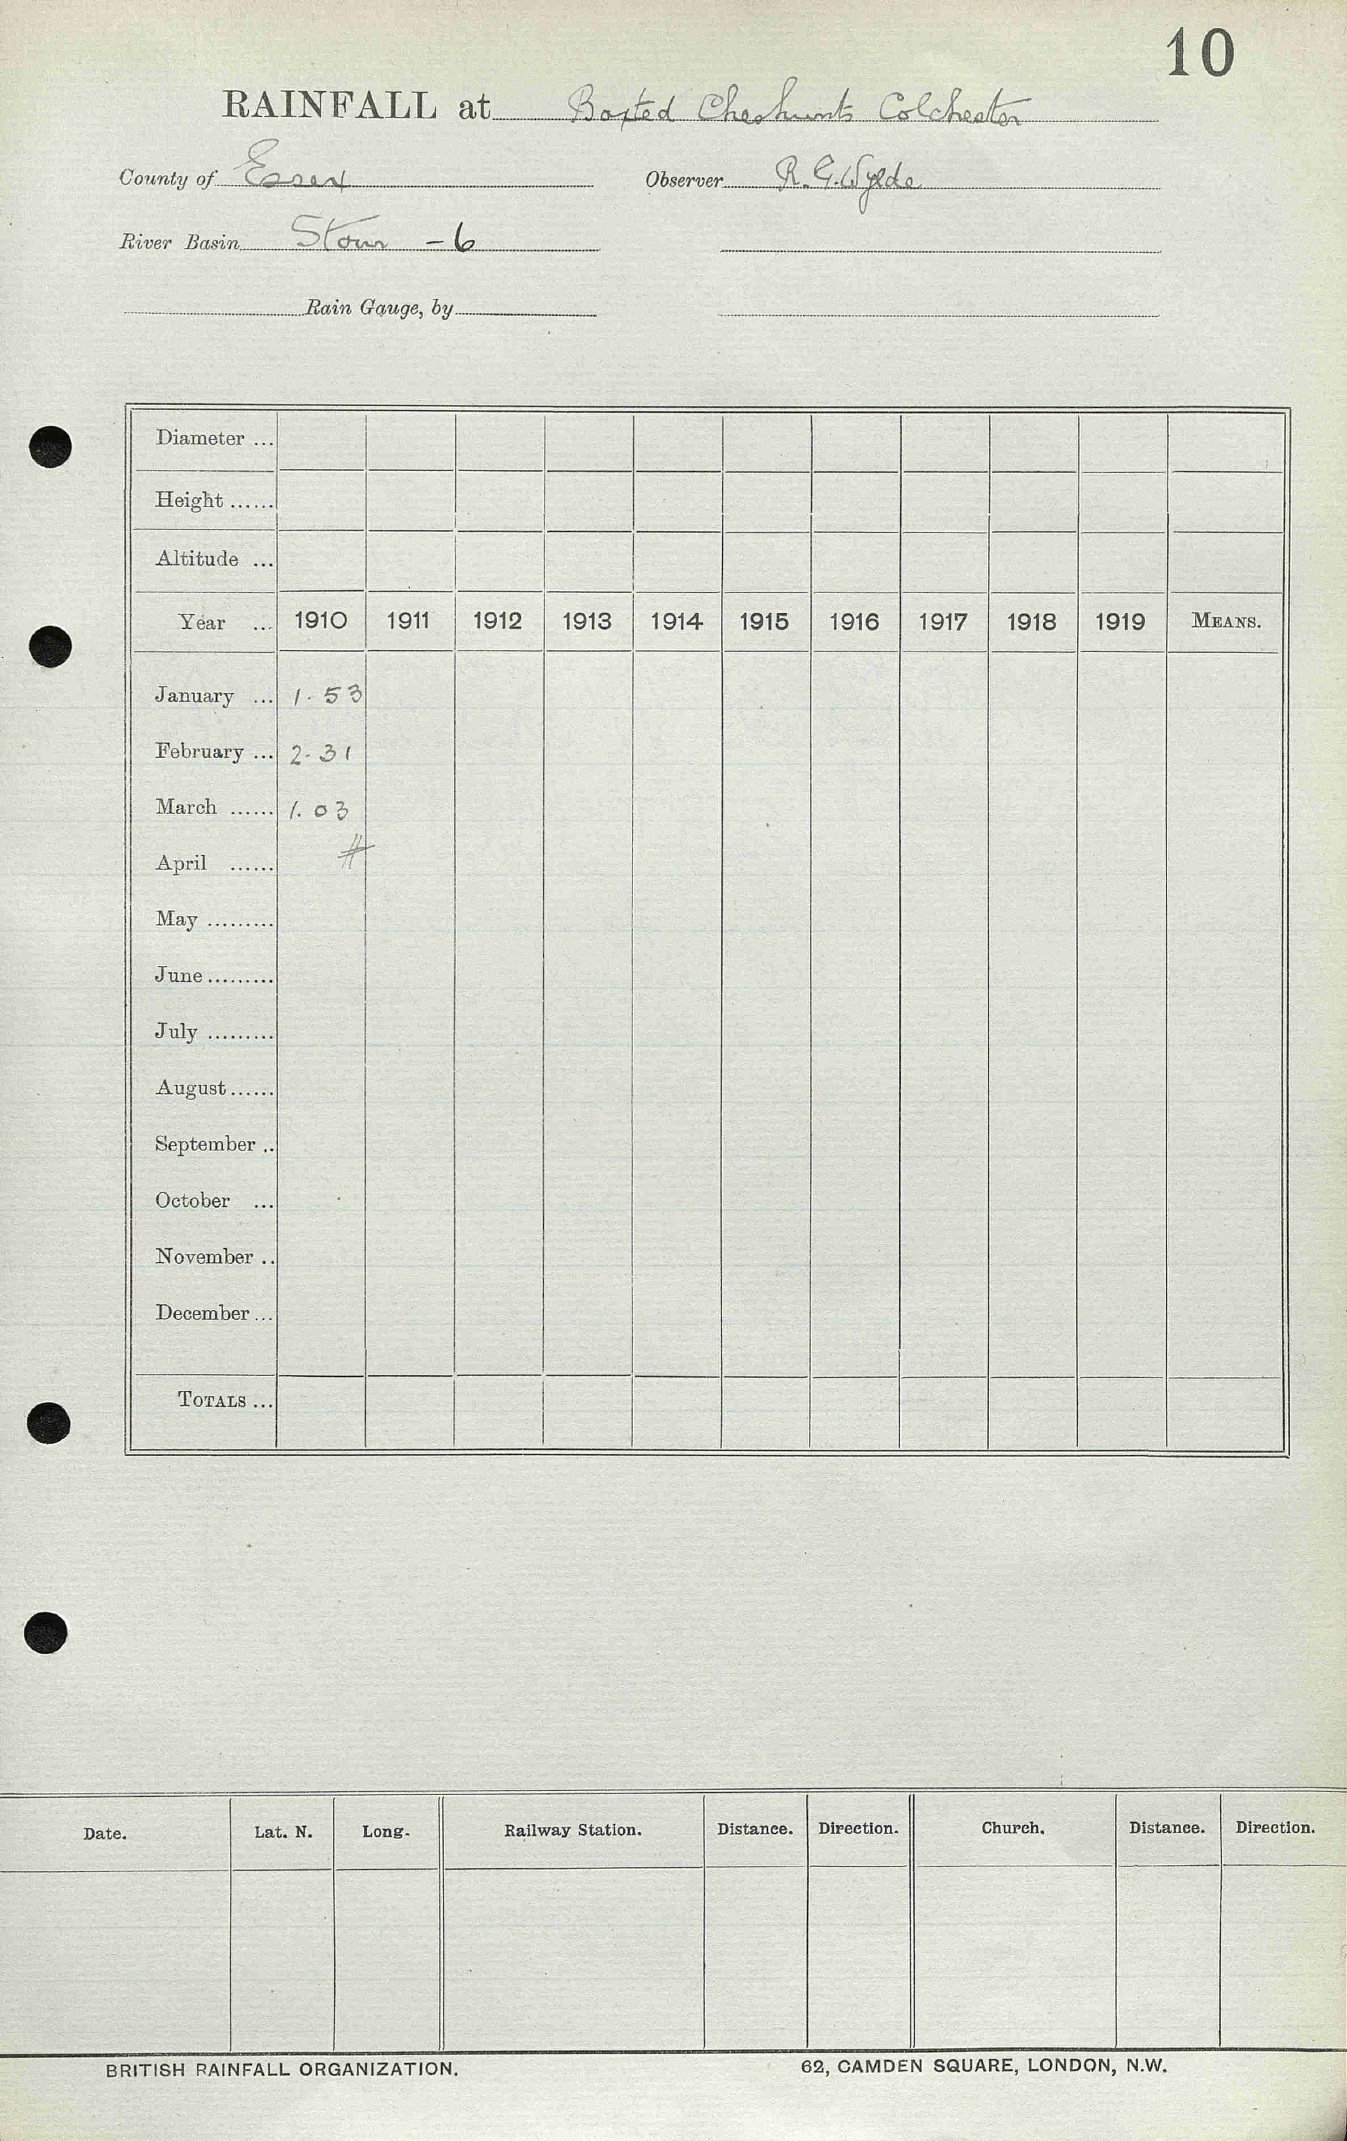 10
RAINFALL at Boxted Cheshunts Colchester
County of Essex Observer R. G. Wylde
River Basin Stour - 6
Rain Gauge, by
Diameter ...
Height ......
Altitude ...
Year ... 1910 1911 1912 1913 1914 1915 1916 1917 1918 1919 MEANS.
January ... 1.53
February ... 2.31
March ...... 1.03
April ...... #
May .........
June .........
July .........
August ......
September ..
October ...
November ..
December ...
TOTALS ...
Date. Lat. N. Long. Railway Station. Distance. Direction. Church. Distance. Direction.
BRITISH RAINFALL ORGANIZATION. 62, CAMDEN SQUARE, LONDON, N.W.